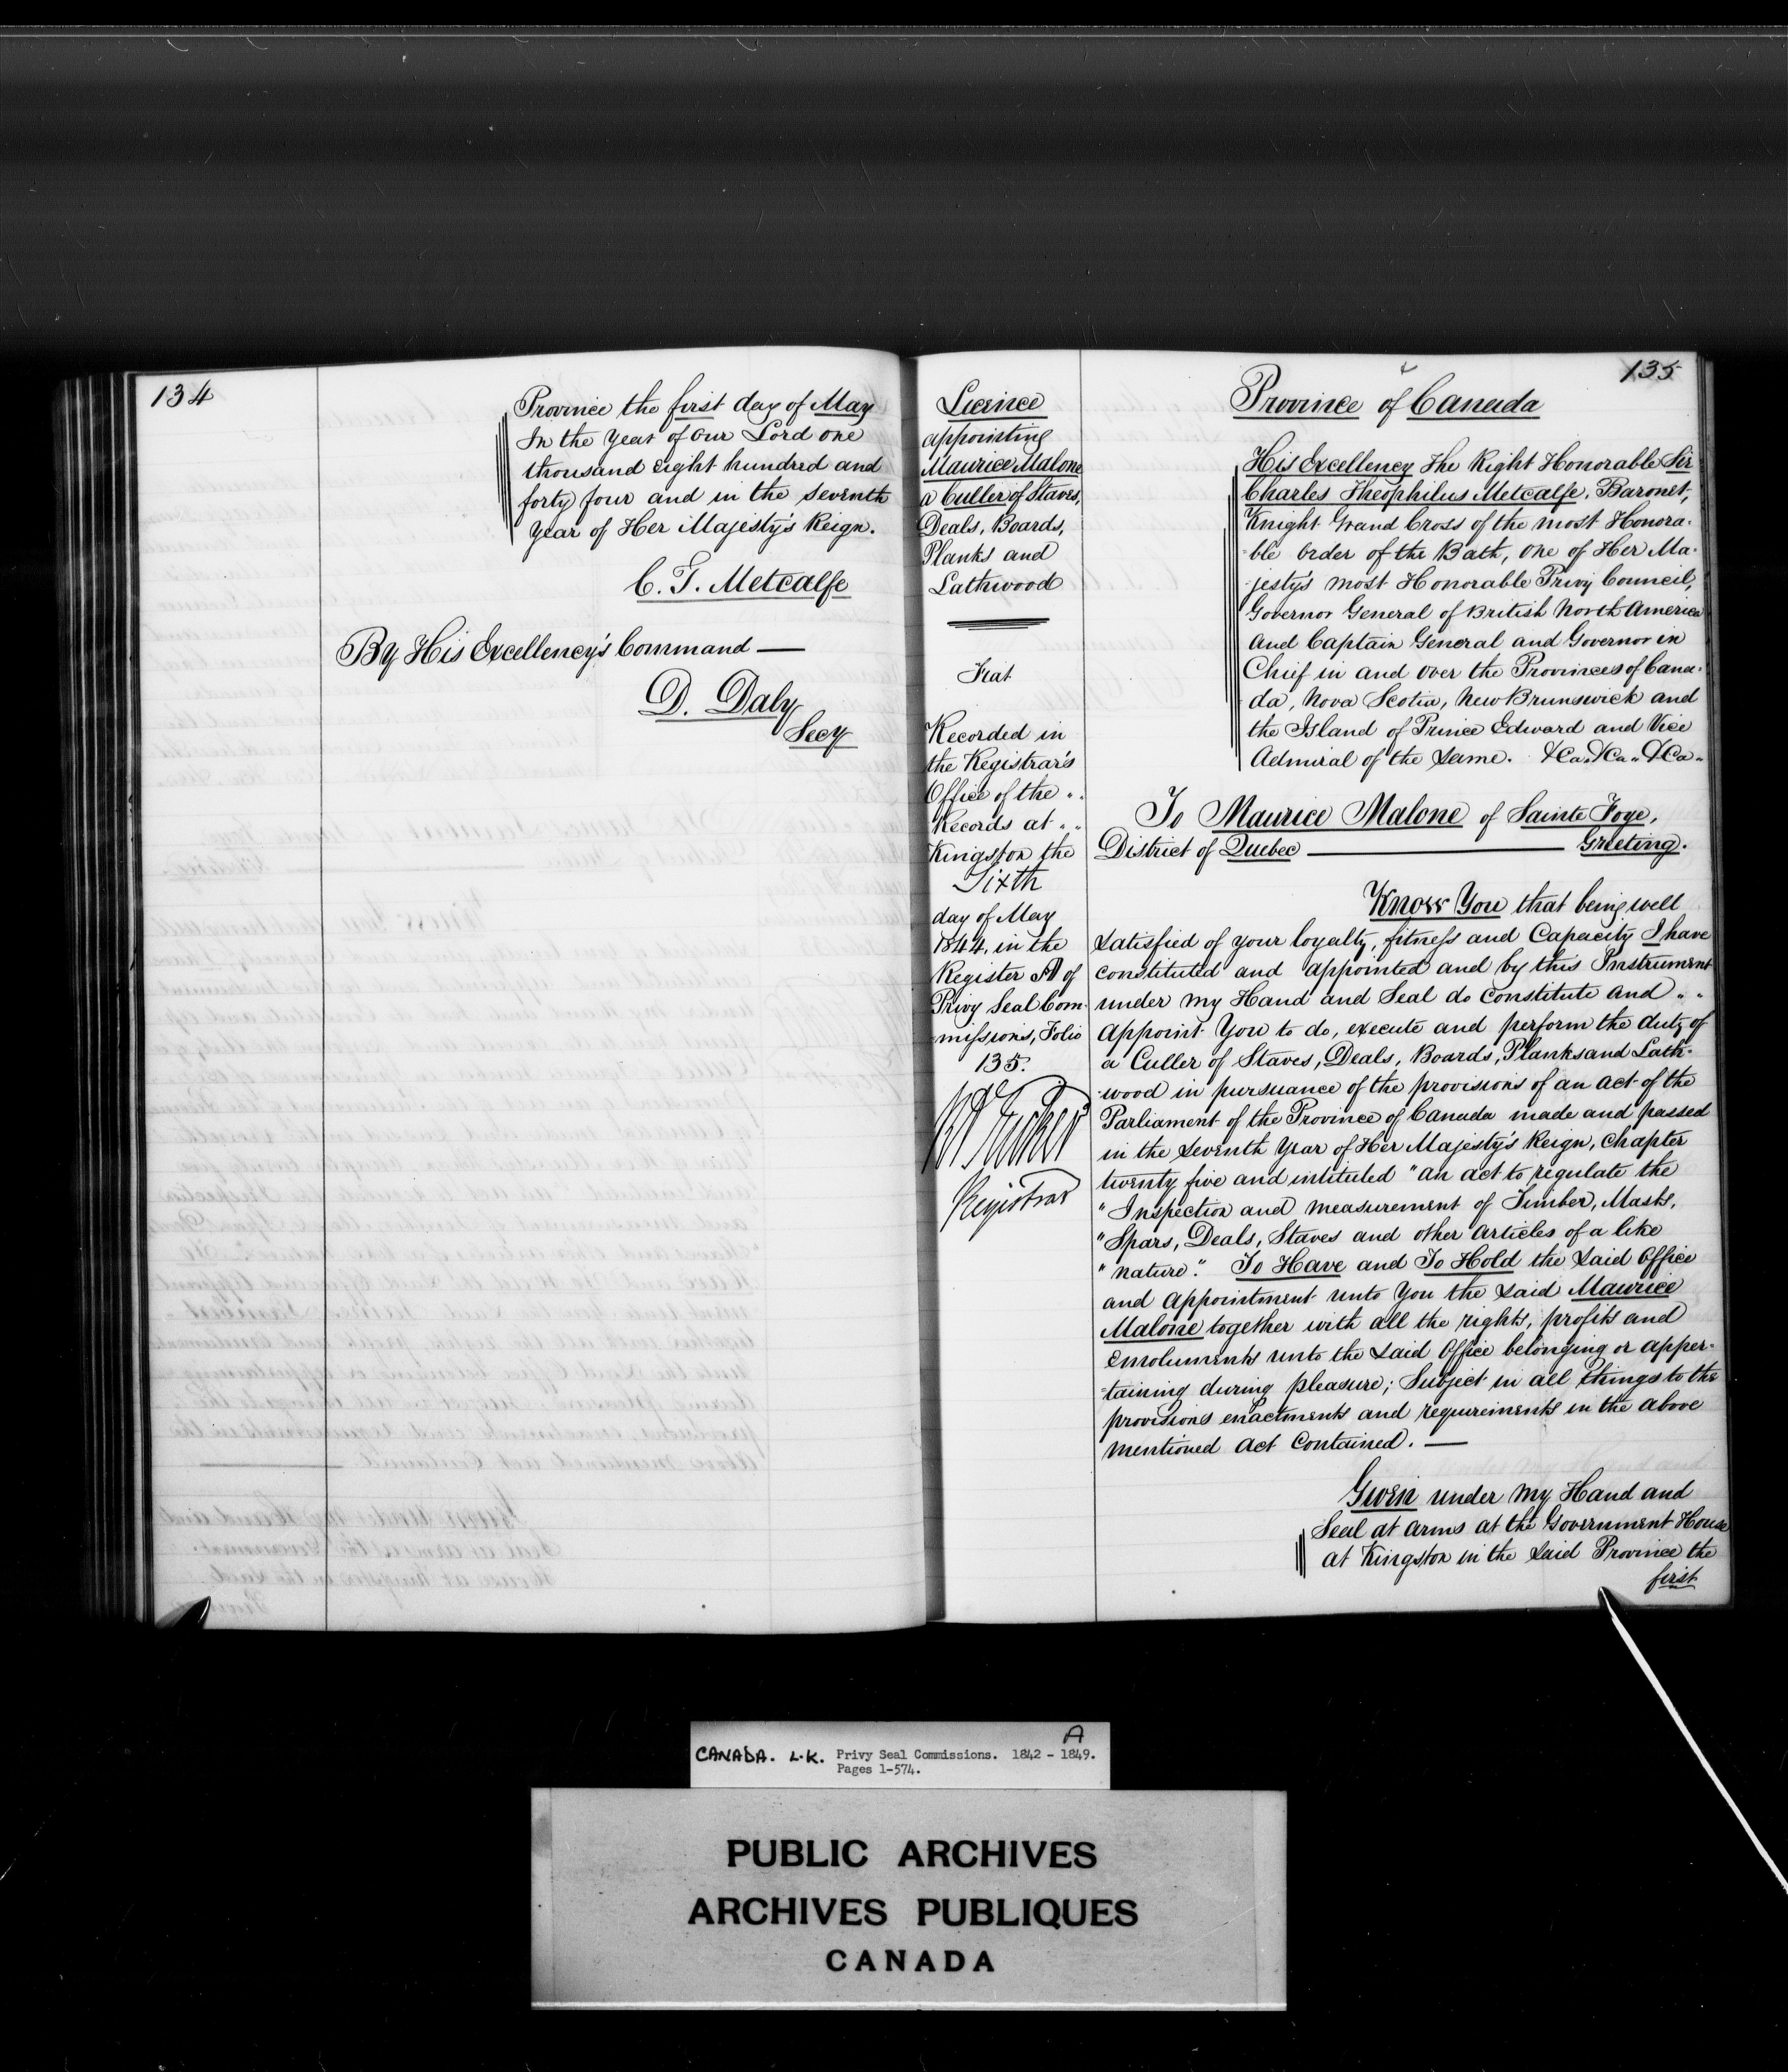 134
Province the first day of May
In the Year of Our Lord one
thousand eight hundred and
forty four and in the seventh
Year of Her Majesty's Reign.
C. T. Metcalfe
By His Excellency's Command —
D. Daly
Secy
135
Licence
appointing
Maurice Malone
a Culler of Staves,
Deals, Boards,
Planks and
Lathwood
Fiat
Recorded in
the Registrar's
Office of the " "
Records at " "
Kingston the
Sixth
day of May
1844, in the
Register A of
Privy Seal Com-
missions, Folio
135.
Registrar
Province of Canada
His Excellency The Right Honorable Sir
Charles Theophilus Metcalfe, Baronet,
Knight Grand Cross of the most Honora-
-ble Order of the Bath, one of Her Ma-
-jesty's most Honorable Privy Council,
Governor General of British North America
and Captain General and Governor in
Chief in and over the Provinces of Cana-
da, Nova Scotia, New Brunswick and
the Island of Prince Edward and Vice
Admiral of the same. &Ca. &Ca.. &Ca..
To Maurice Malone of Sainte Foye,
District of Quebec — Greeting.
Know You that being well
satisfied of your loyalty, fitness and Capacity I have
constituted and appointed and by this Instrument
under my Hand and Seal do constitute and " "
appoint You to do, execute and perform the duty of
a Culler of Staves, Deals, Boards, Planks and Lath-
-wood in pursuance of the provisions of an act of the
Parliament of the Province of Canada made and passed
in the seventh Year of Her Majesty's Reign, Chapter
twenty five and intituled "an act to regulate the
"Inspection and measurement of Timber, Masts,
"Spars, Deals, Staves and other articles of a like
"nature." To Have and To Hold the said Office
and appointment unto You the said Maurice
Malone together with all the rights, profits and
Emoluments unto the said Office belonging or apper-
-taining during pleasure; Subject in all things to the
provisions enactments and requirements in the above
mentioned act contained. —
Given under my Hand and
Seal at arms at the Government House
at Kingston in the said Province the
first
CANADA. L.K. Privy Seal Commissions. 1842 - 1849. A
Pages 1-574.
PUBLIC ARCHIVES
ARCHIVES PUBLIQUES
CANADA